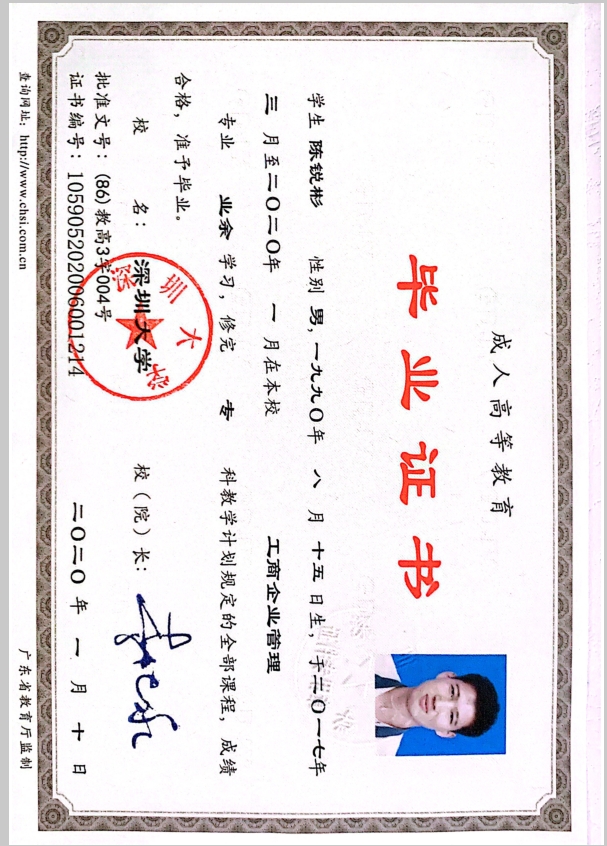 成人高等教育
毕业证书
学生 陈锐彬 性别 男, 一九九〇年 八 月 十五 日生, 于二〇一七年
三 月至二〇二〇年 一 月在本校 工商企业管理
专业 业余 学习, 修完 专 科教学计划规定的全部课程, 成绩
合格, 准予毕业。
校 名: 深圳大学 校(院)长:
深圳大学
批准文号: (86)教高3字004号
证书编号: 105905202006001214 二〇二〇年 一 月 十 日
查询网址: http://www.chsi.com.cn 广东省教育厅监制